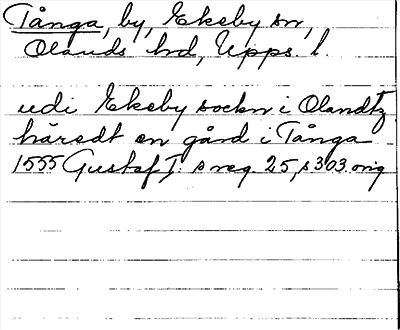 Tånga, by, Ekeby sn,
Olands hd, Upps. l.
udi Ekeby sockn i Olandtz
häredt en gård i Tånga
1555 Gustaf I:s reg. 25, s 303 orig